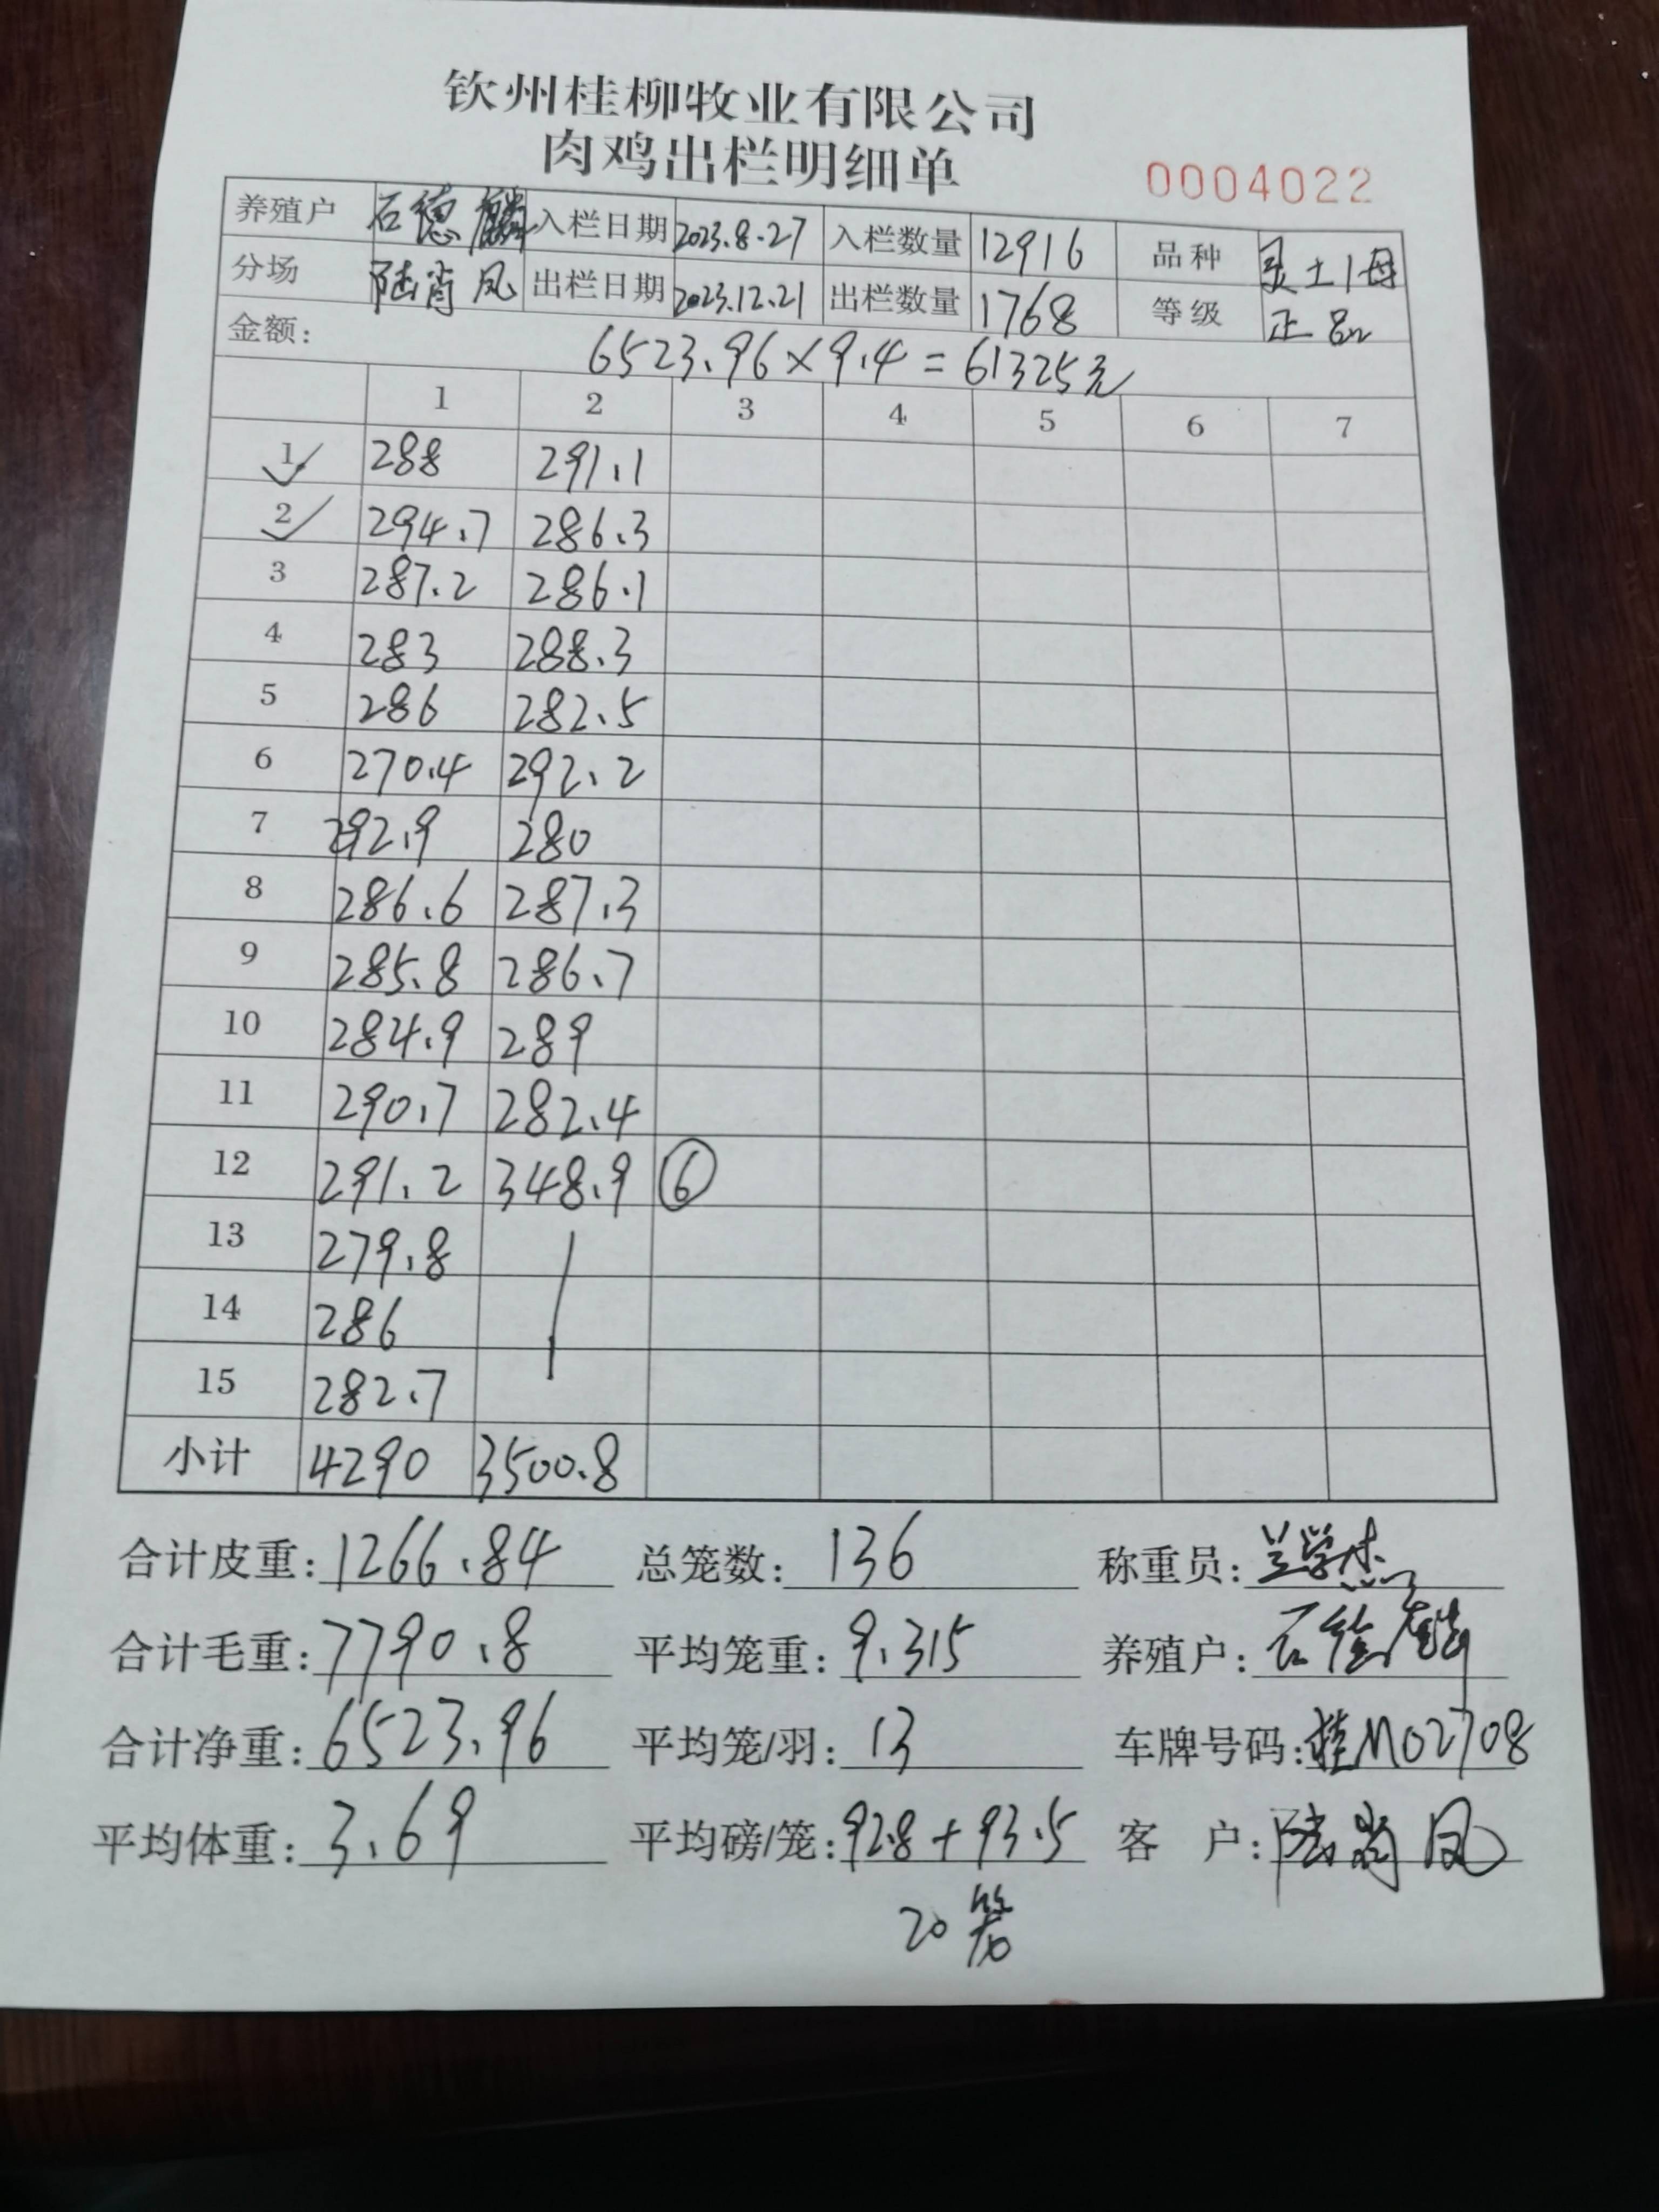 钦州桂柳牧业有限公司
肉鸡出栏明细单
0004022
养殖户 石德麟 入栏日期 2023.8.27 入栏数量 12916 品种 灵土1母
分场 陆肖凤 出栏日期 2023.12.21 出栏数量 1768 等级 正品
金额: 6523.96×9.4=61325元
1 2 3 4 5 6 7
1 288 291.1
2 294.7 286.3
3 287.2 286.1
4 283 288.3
5 286 282.5
6 270.4 292.2
7 292.9 280
8 286.6 287.3
9 285.8 286.7
10 284.9 289
11 290.7 282.4
12 291.2 348.9 ⑥
13 279.8
14 286
15 282.7
小计 4290 3500.8
合计皮重: 1266.84 总笼数: 136 称重员: 兰学杰
合计毛重: 7790.8 平均笼重: 9.315 养殖户: 石德麟
合计净重: 6523.96 平均笼/羽: 13 车牌号码: 桂M02708
平均体重: 3.69 平均磅/笼: 92.8+93.5 客 户: 陆肖凤
20笼